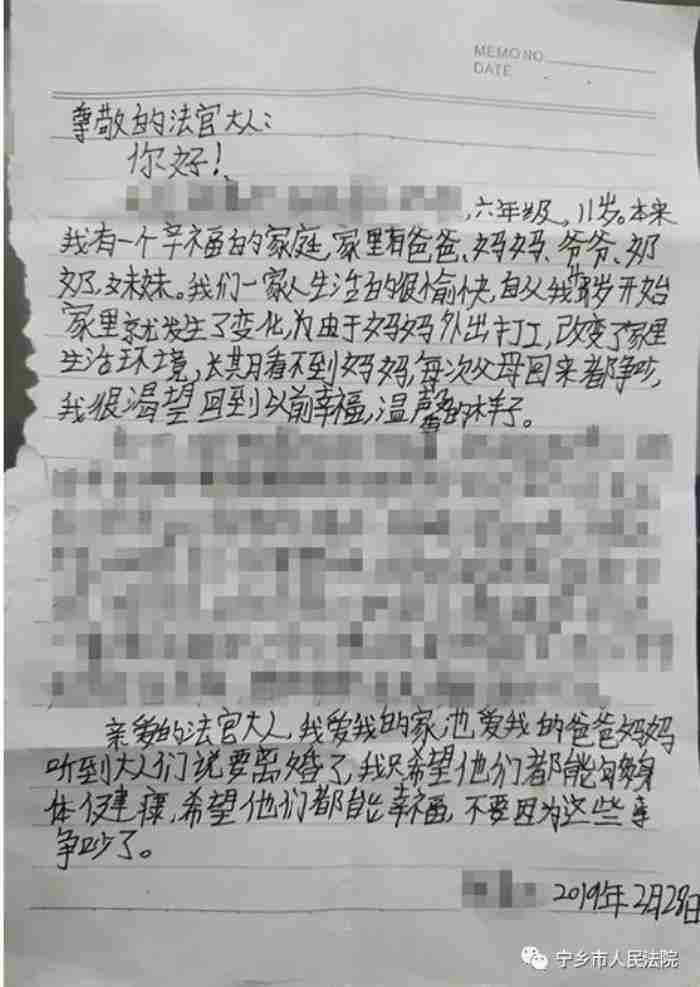 MEMO NO.
DATE
尊敬的法官大人：
你好！
，六年级，11岁。本来
我有一个辛福的家庭，家里有爸爸、妈妈、爷爷、奶
奶、妹妹。我们一家人生活的很愉快，自从我岁开始
家里就发生了变化，为由于妈妈外出打工，改变了家里
生活环境，长其月看不到妈妈，每次父母回来都争吵，
我很渴望回到以前幸福，温馨的样子。
亲爱的法官大人，我爱我的家，也爱我的爸爸妈妈
听到大人们说要离婚了，我只希望他们都能够身
体健康，希望他们都能幸福，不要因为这些事
争吵了。
2019年2月28日
宁乡市人民法院